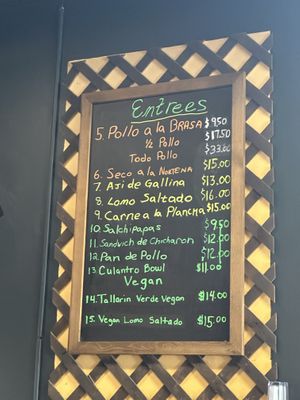 Entrees
5. Pollo a la BRASA $9.50
½ Pollo $17.50
Todo Pollo $33.00
6. Seco a la Nortena $15.00
7. Asi de Gallina $13.00
8. Lomo Saltado $16.00
9. Carne a la Plancha $15.00
10. Salchipapas $9.50
11. Sandvich de Chicharon $12.00
12. Pan de Pollo $12.00
13. Culantro Bowl $11.00
Vegan
14. Tallarin Verde Vegan $14.00
15. Vegan Lomo Saltado $15.00